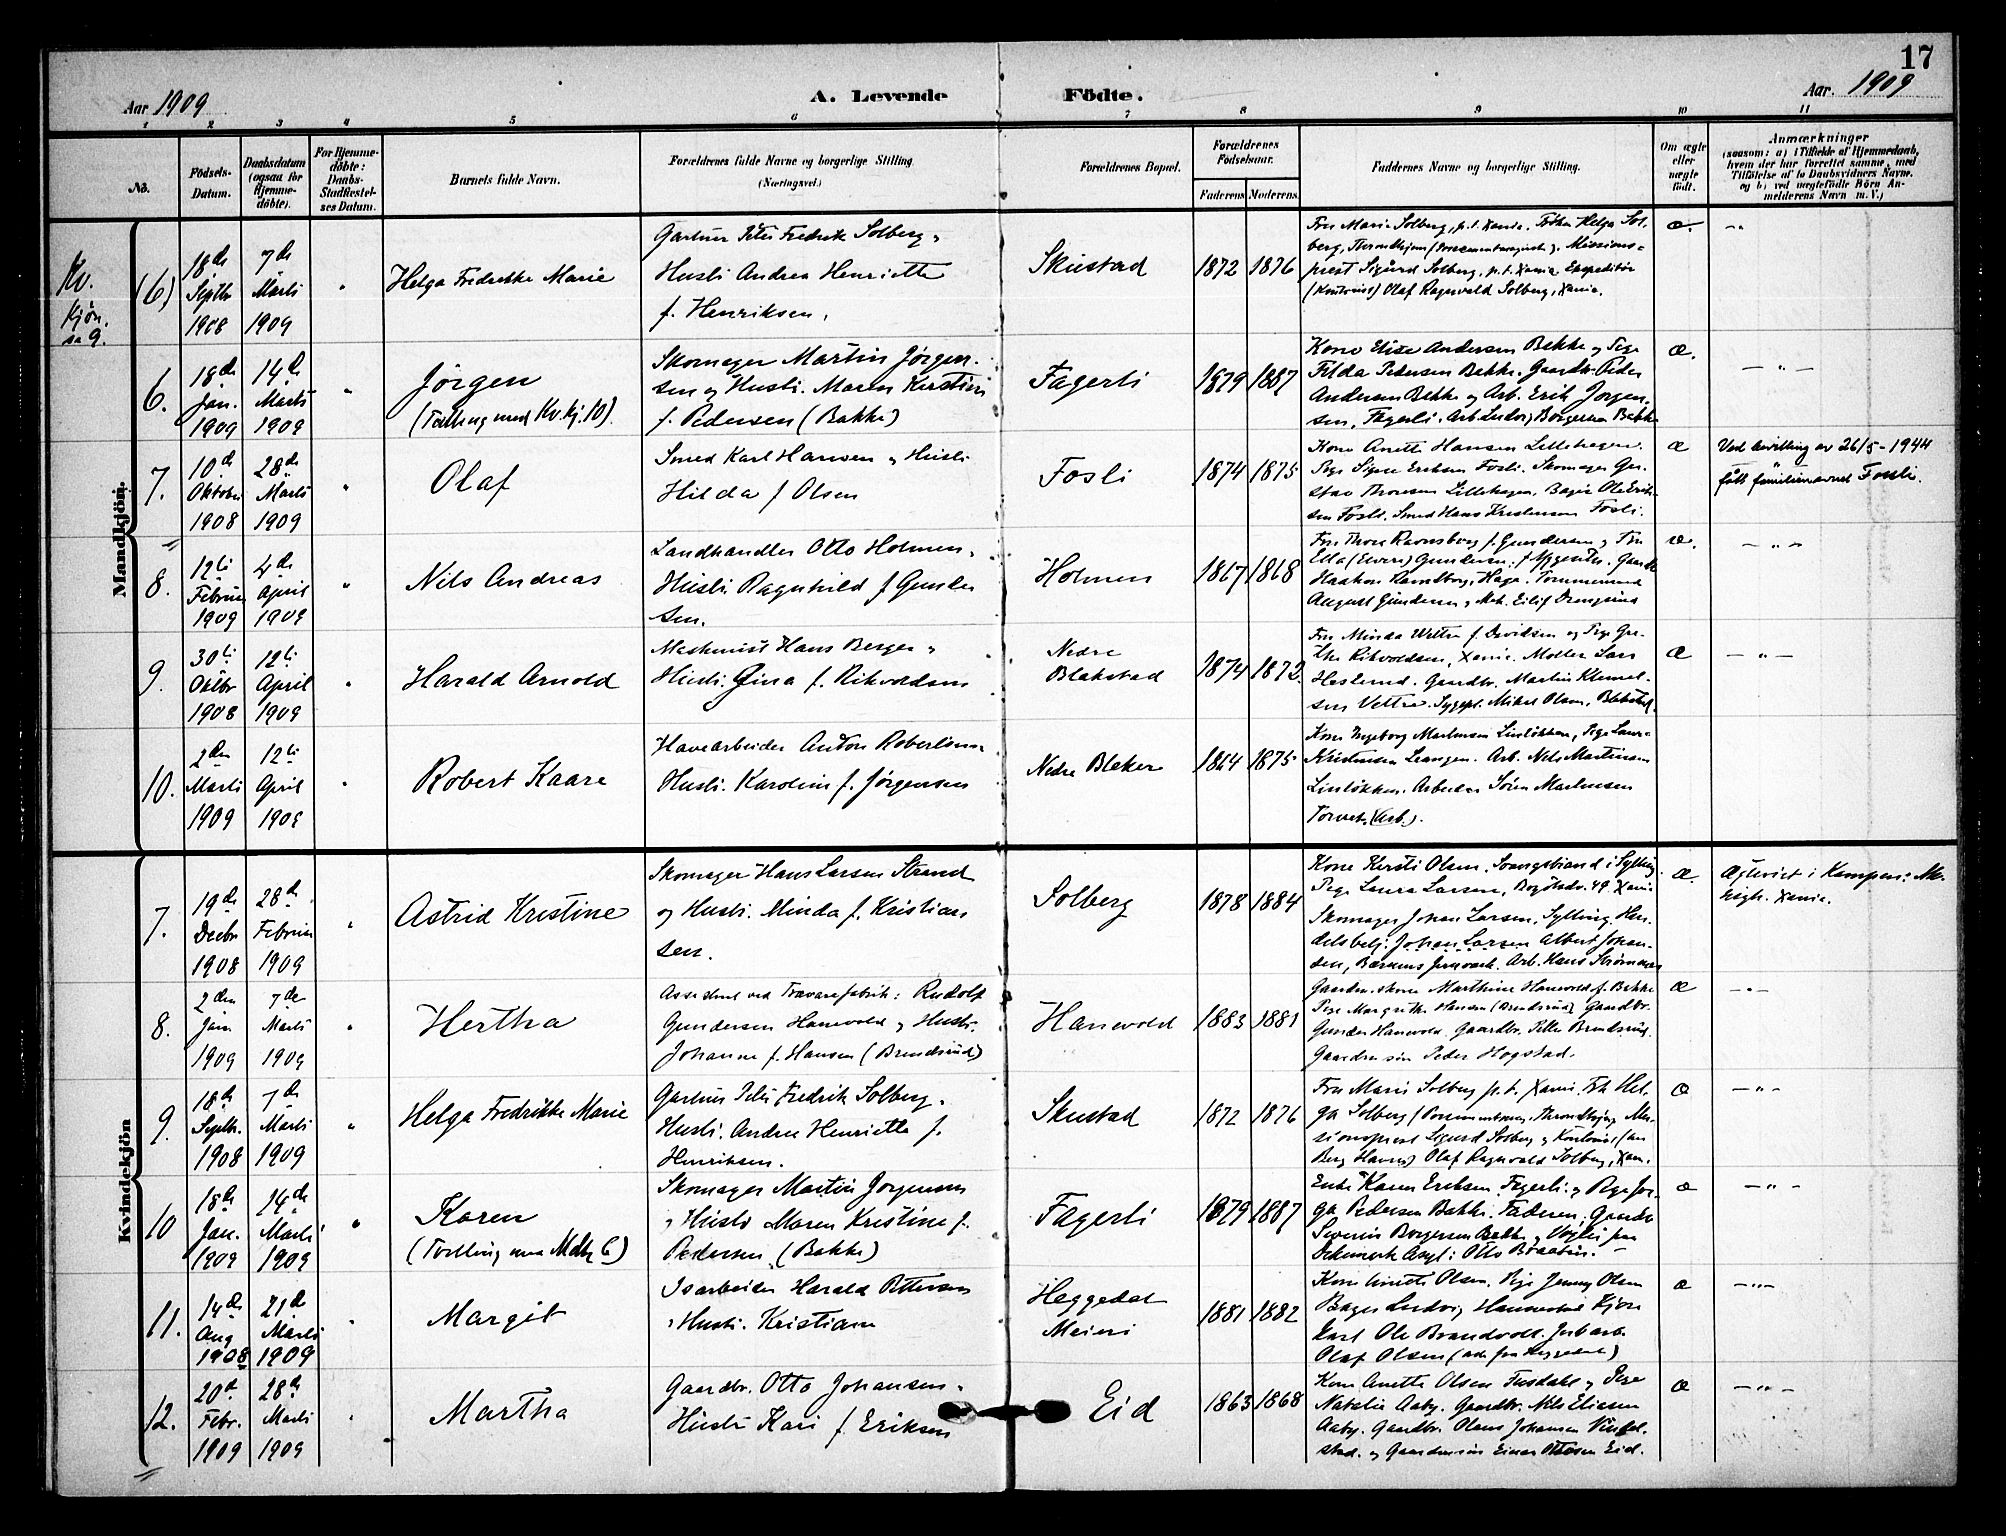 17
Aar 1909
A. Levende Födte.
Aar. 1909
1 2 3 4 5 6 7 8 9 10 11
No.
Födsels-Datum.
Daabsdatum (ogsaa for Hjemme-döbte).
For Hjemme-döbte: Daabs-Stadfæstel-ses Datum.
Barnets fulde Navn.
Forældrenes fulde Navne og borgerlige Stilling. (Næringsvei.)
Forældrenes Bopæl.
Forældrenes Födselsaar.
Faderens Moderens
Faddernes Navne og borgerlige Stilling.
Om ægte eller uægte födt.
Anmærkninger
(saasom: a) i Tilfælde af Hjemmedaab, hvem der har forrettet samme, med Tilföielse af to Daabsvidners Navne. og b) ved uægtefödte Börn An-melderens Navn m. V.)
Kv. kjön. se 9.
(6)
18de Septbr 1908
7de Marts 1909
Helga Fredrikke Marie
Gartner Peter Fredrik Solberg
Hustru Andrea Henriette
f. Henriksen.
Skustad
1872 1876
Fru Marie Solberg, p.t. Xania. Frkn Helga Sol-
berg, Throndhjem
prest Sigurd Solberg, p.t. Xania Ekspeditör
Olaf Ragnvald Solberg, Xania.
æ.
Mandkjön.
6.
18de Jan. 1909
14de Marts 1909
Jörgen
(Tvilling med Kv.kj. 10).
Skomager Martin Jörgen-
sen og Hustru Maren Kirstine
f. Pedersen (Bakke)
Fagerli
1879 1887
Kone Elise Andersen Bakke og Pige
Tilda Pedersen Bakke. Gaardbr. Peder
Andersen Bakke og Arb. Erik Jörgen-
sen, Fagerli. Arb. Ludvig Borgersen Bakke
æ.
7.
10de Oktober 1908
28de Marts 1909
Olaf
Smed Karl Hansen og Hustru
Hilda f Olsen
Fosli
1874 1875
Kone Anette Hansen Lillehagen.
Pige Signe Eriksen Fosli. Skomager Gu-
stav Thoresen Lillehagen. Bager Ole Erik-
sen Fosli. Smed Hans Kristensen Fosli.
æ
Ved bevilling av 26/5-1944
fått familienavnet Fosli.
8.
12te Februar 1909
4de April 1909
Nils Andreas
Landhandler Otto Holmen
Hustru Ragnhild f Gunder
sen.
Holmen
1867 1868
Fru Thora Ravnsborg f. Gundersen og Fru
Haakon Ravnsborg, Haga.
August Gundersen
æ.
9.
30te Oktbr 1908
12te April 1909
Harald Arnold
Maskinist Hans Berger
Hustru Gina f. Rikvoldsen
Nedre
Blakstad
1874 1872.
Fru Minda Vettre f. Davidsen og Pige Gre-
the Rikvoldsen, Xania. Möller Lars
Heslund. Gaardbr. Martin Klemet-
sen Vettre. Mikal Olsen, Blakstad.
æ
10.
2den Marts 1909
12te April 1909
Robert Kaare
Havearbeider Anton Robertsen
Hustru Karoline f. Jörgensen
Nedre Bleker
1864 1875
Kone Ingeborg Martinsen Linlökken, Pige Laura
Kristensen Leangen. Arb. Nils Martinsen
Linlökken. Arbeider Sören Martinsen
Torvet. (Arb.).
Kvindekjön
7.
19de Decbr 1908
28de Februar 1909
Astrid Kristine
Skomager Hans Larsen Strand
og Hustru Minda f. Kristian
sen.
Solberg
1878 1884
Kone Kirsti Olsen. Svangstrand i Sylling.
Pige Laura Larsen, Xania
Skomager Johan Larsen, Sylling. Han-
delsbetj. Johan Larsen Albert Johan-
sen, Bærums Jernværk. Arb. Hans Strömmen
æ.
Ægteviet i Kampens Me-
nigh. Xania.
8.
2den Jan. 1909
7de Marts 1909
Hertha
Assistent ved Trævarefabrik: Rudolf
Gundersen Hanevold og Hustr.
Johanne f. Hansen (Brendsrud)
Hanevold
1883 1881
Gaardm.skone Marthine Hanevold f. Bakke
Pige Margrethe Hansen (Brendsrud) Gaardbr.
Gunder Hanevold. Gaardbr. Peter Brendsrud.
Gaardmsön Peder Hogstad.
æ
9.
18de Septbr. 1908
7de Marts 1909
Helga Fredrikke Marie
Gartner Peter Fredrik Solberg.
Hustru Andrea Henriette f.
Henriksen.
Skustad
1872 1876
Fru Marie Solberg p.t. Xania. Frk Hel-
ga Solberg Throndhjem Mis-
sionsprest Sigurd Solberg og
Olaf Ragnvald Solberg, Xan.
æ
10
18de Jan. 1909
14de Marts 1909
Karen
(Tvilling med Mdkj 6)
Skomager Martin Jörgensen
og Hustru Maren Kristine f.
Pedersen (Bakke)
Fagerli
1879 1887
Enke Karen Eriksen Fagerli og Pige Jör-
ga Pedersen Bakke. Faderen. Gaardbr
Severin Borgersen Bakke og
Dikemark Asyl: Otto Braaten.
æ
11.
14de Aug 1908
21de Marts 1909
Margit
Isarbeider Harald Pettersen
og Hustru Kristiane
Heggedal
Meieri
1881 1882
Kone Anette Olsen. Pige Jenny Olsen
Bager Ludvig
Karl Ole Brandvold. Jernb.arb.
Olaf Olsen (alle fra Heggedal)
æ
12.
20de Febr. 1909
28de Marts 1909
Martha
Gaardbr. Otto Johansen
Hustru Kari f Eriksen
Eid
1863 1868
Kone Anette Olsen Fusdahl og Pige
Natalia Aaby. Gaardbr. Nils Eliasen
Aaby. Gaardbr. Olaus Johansen
stad. og Gaardmsön Einar Ottosen Eid.
æ